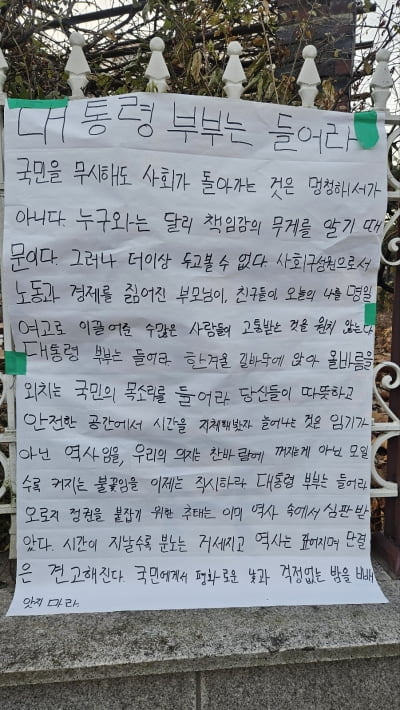 대통령 부부는 들어라
국민을 무시해도 사회가 돌아가는 것은 멍청해서가
아니다. 누구와는 달리 책임감의 무게를 알기 때
문이다. 그러나 더이상 두고볼 수 없다. 사회구성원으로서
노동과 경제를 짊어진 부모님이, 친구들이 오늘의 나를 명일
여고로 이끌어준 수많은 사람들이 고통받는 것을 원치 않는다
대통령 부부는 들어라. 한겨울 길바닥에 앉아 올바름을
외치는 국민의 목소리를 들어라 당신들이 따뜻하고
안전한 공간에서 시간을 지체해봤자 늘어나는 것은 임기가
아닌 역사임을, 우리의 의지는 찬바람에 꺼지는게 아닌 모일
수록 커지는 불꽃임을 이제는 직시하라 대통령 부부는 들어라
오로지 정권을 붙잡기 위한 추태는 이미 역사 속에서 심판 받
았다. 시간이 지날수록 분노는 거세지고 역사는 표어지며 단결
은 견고해진다. 국민에게서 평화로운 낮과 걱정없는 밤을 빼
앗지 마라.